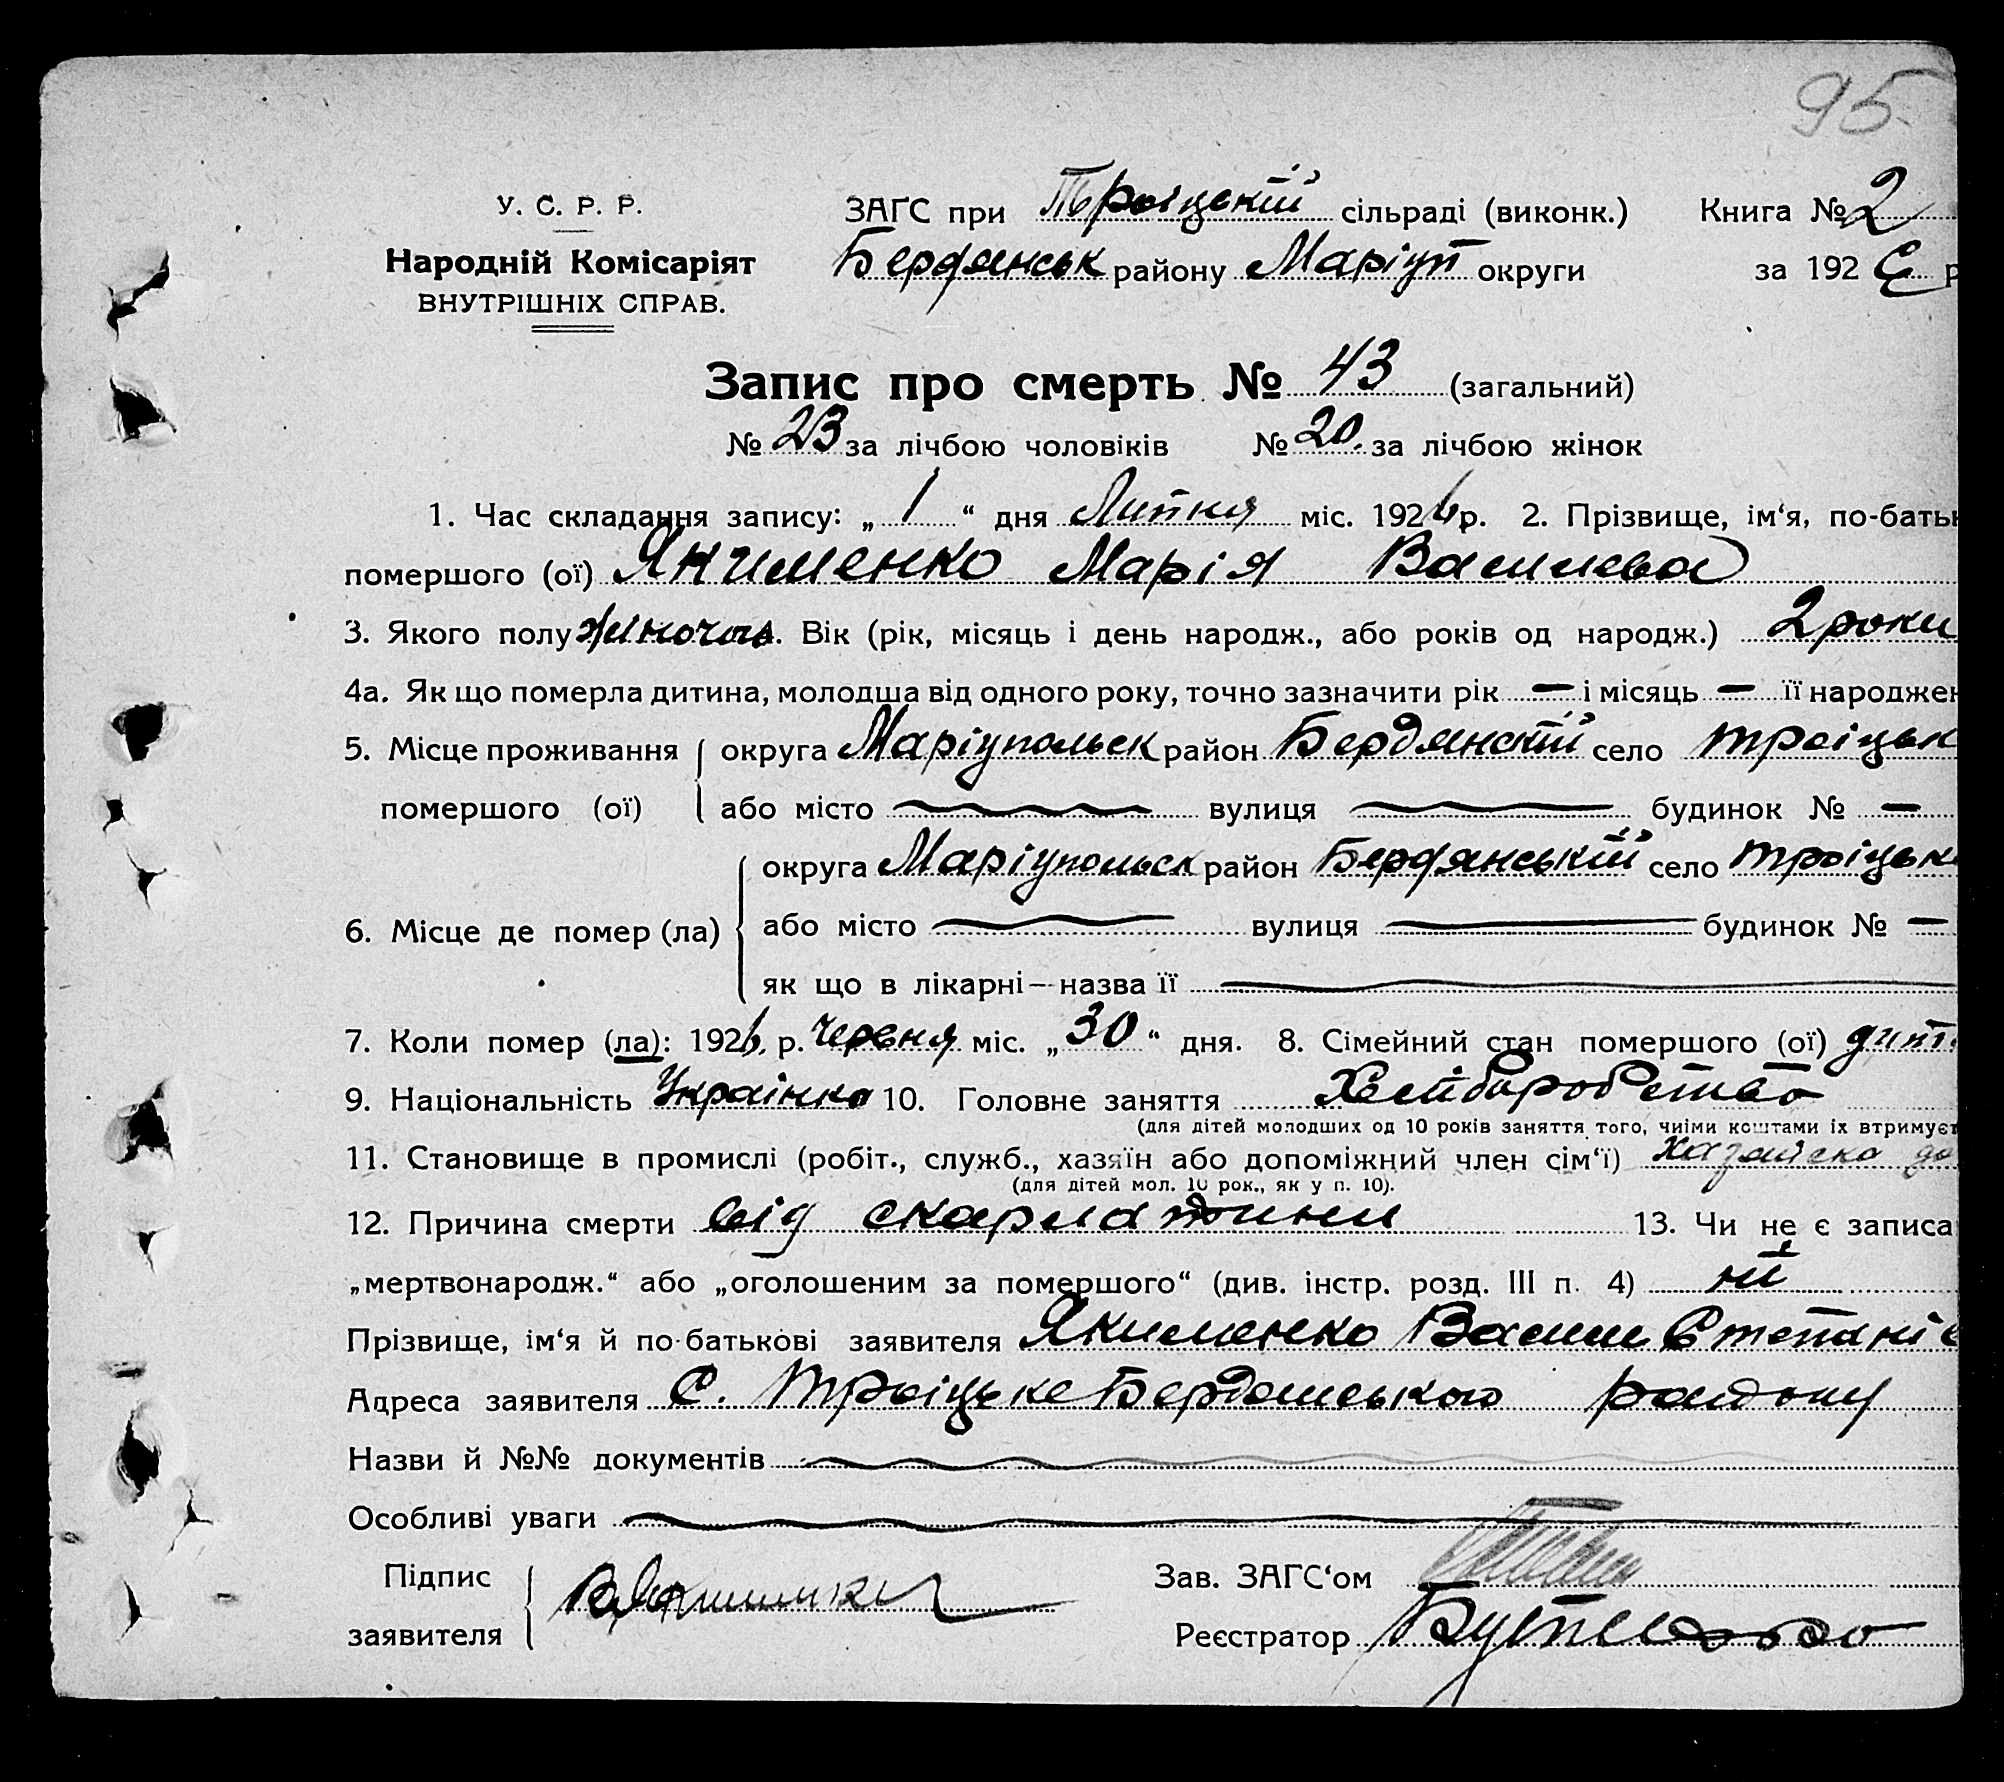 95.
У. С. Р. Р.
Народній Комісаріят
ВНУТРІШНІХ СПРАВ.
ЗАГС при Троіцькій сільраді (виконк.) Книга № 2
Бердянськ району Маріуп округи за 192 6 р
Запис про смерть № 43 (загальний)
№ 23 за лічбою чоловіків № 20. за лічбою жінок
1. Час складання запису: „ 1 “ дня Липня міс. 1926 р. 2. Прізвище, ім‘я, по-батьк
помершого (ої) Якименко Марія Василева
3. Якого полу жіночоі. Вік (рік, місяць і день народж., або років од народж.) 2 роки
4а. Як що померла дитина, молодша від одного року, точно зазначити рік — і місяць — її народжен
5. Місце проживання округа Маріупольск район Бердянскій село Троіцьк
помершого (ої) або місто вулиця будинок № —
6. Місце де помер (ла) округа Маріупольск район Бердянській село Троіцьк
або місто вулиця будинок № —
як що в лікарні—назва її
7. Коли помер (ла): 1926. р. Червня міс. „ 30 “ дня. 8. Сімейний стан помершого (ої) дит.
9. Національність Украінка 10. Головне заняття Хлібороб ство
(для дітей молодших од 10 років заняття того, чиїми коштами їх втримуєт
11. Становище в промислі (робіт., служб., хазяїн або допоміжний член сім‘ї) хазяіска до
(для дітей мол. 10 рок., як у п. 10).
12. Причина смерти від скарлатини 13. Чи не є записа
„мертвонародж.“ або „оголошеним за помершого“ (див. інстр. розд. III п. 4) ні
Прізвище, ім‘я й по-батькові заявителя Якименко Васил Степанів
Адреса заявителя С. Троіцьке Бердянського району
Назви й №№ документів
Особливі уваги
Підпис
заявителя В Якименко
Зав. ЗАГС‘ом
Реєстратор